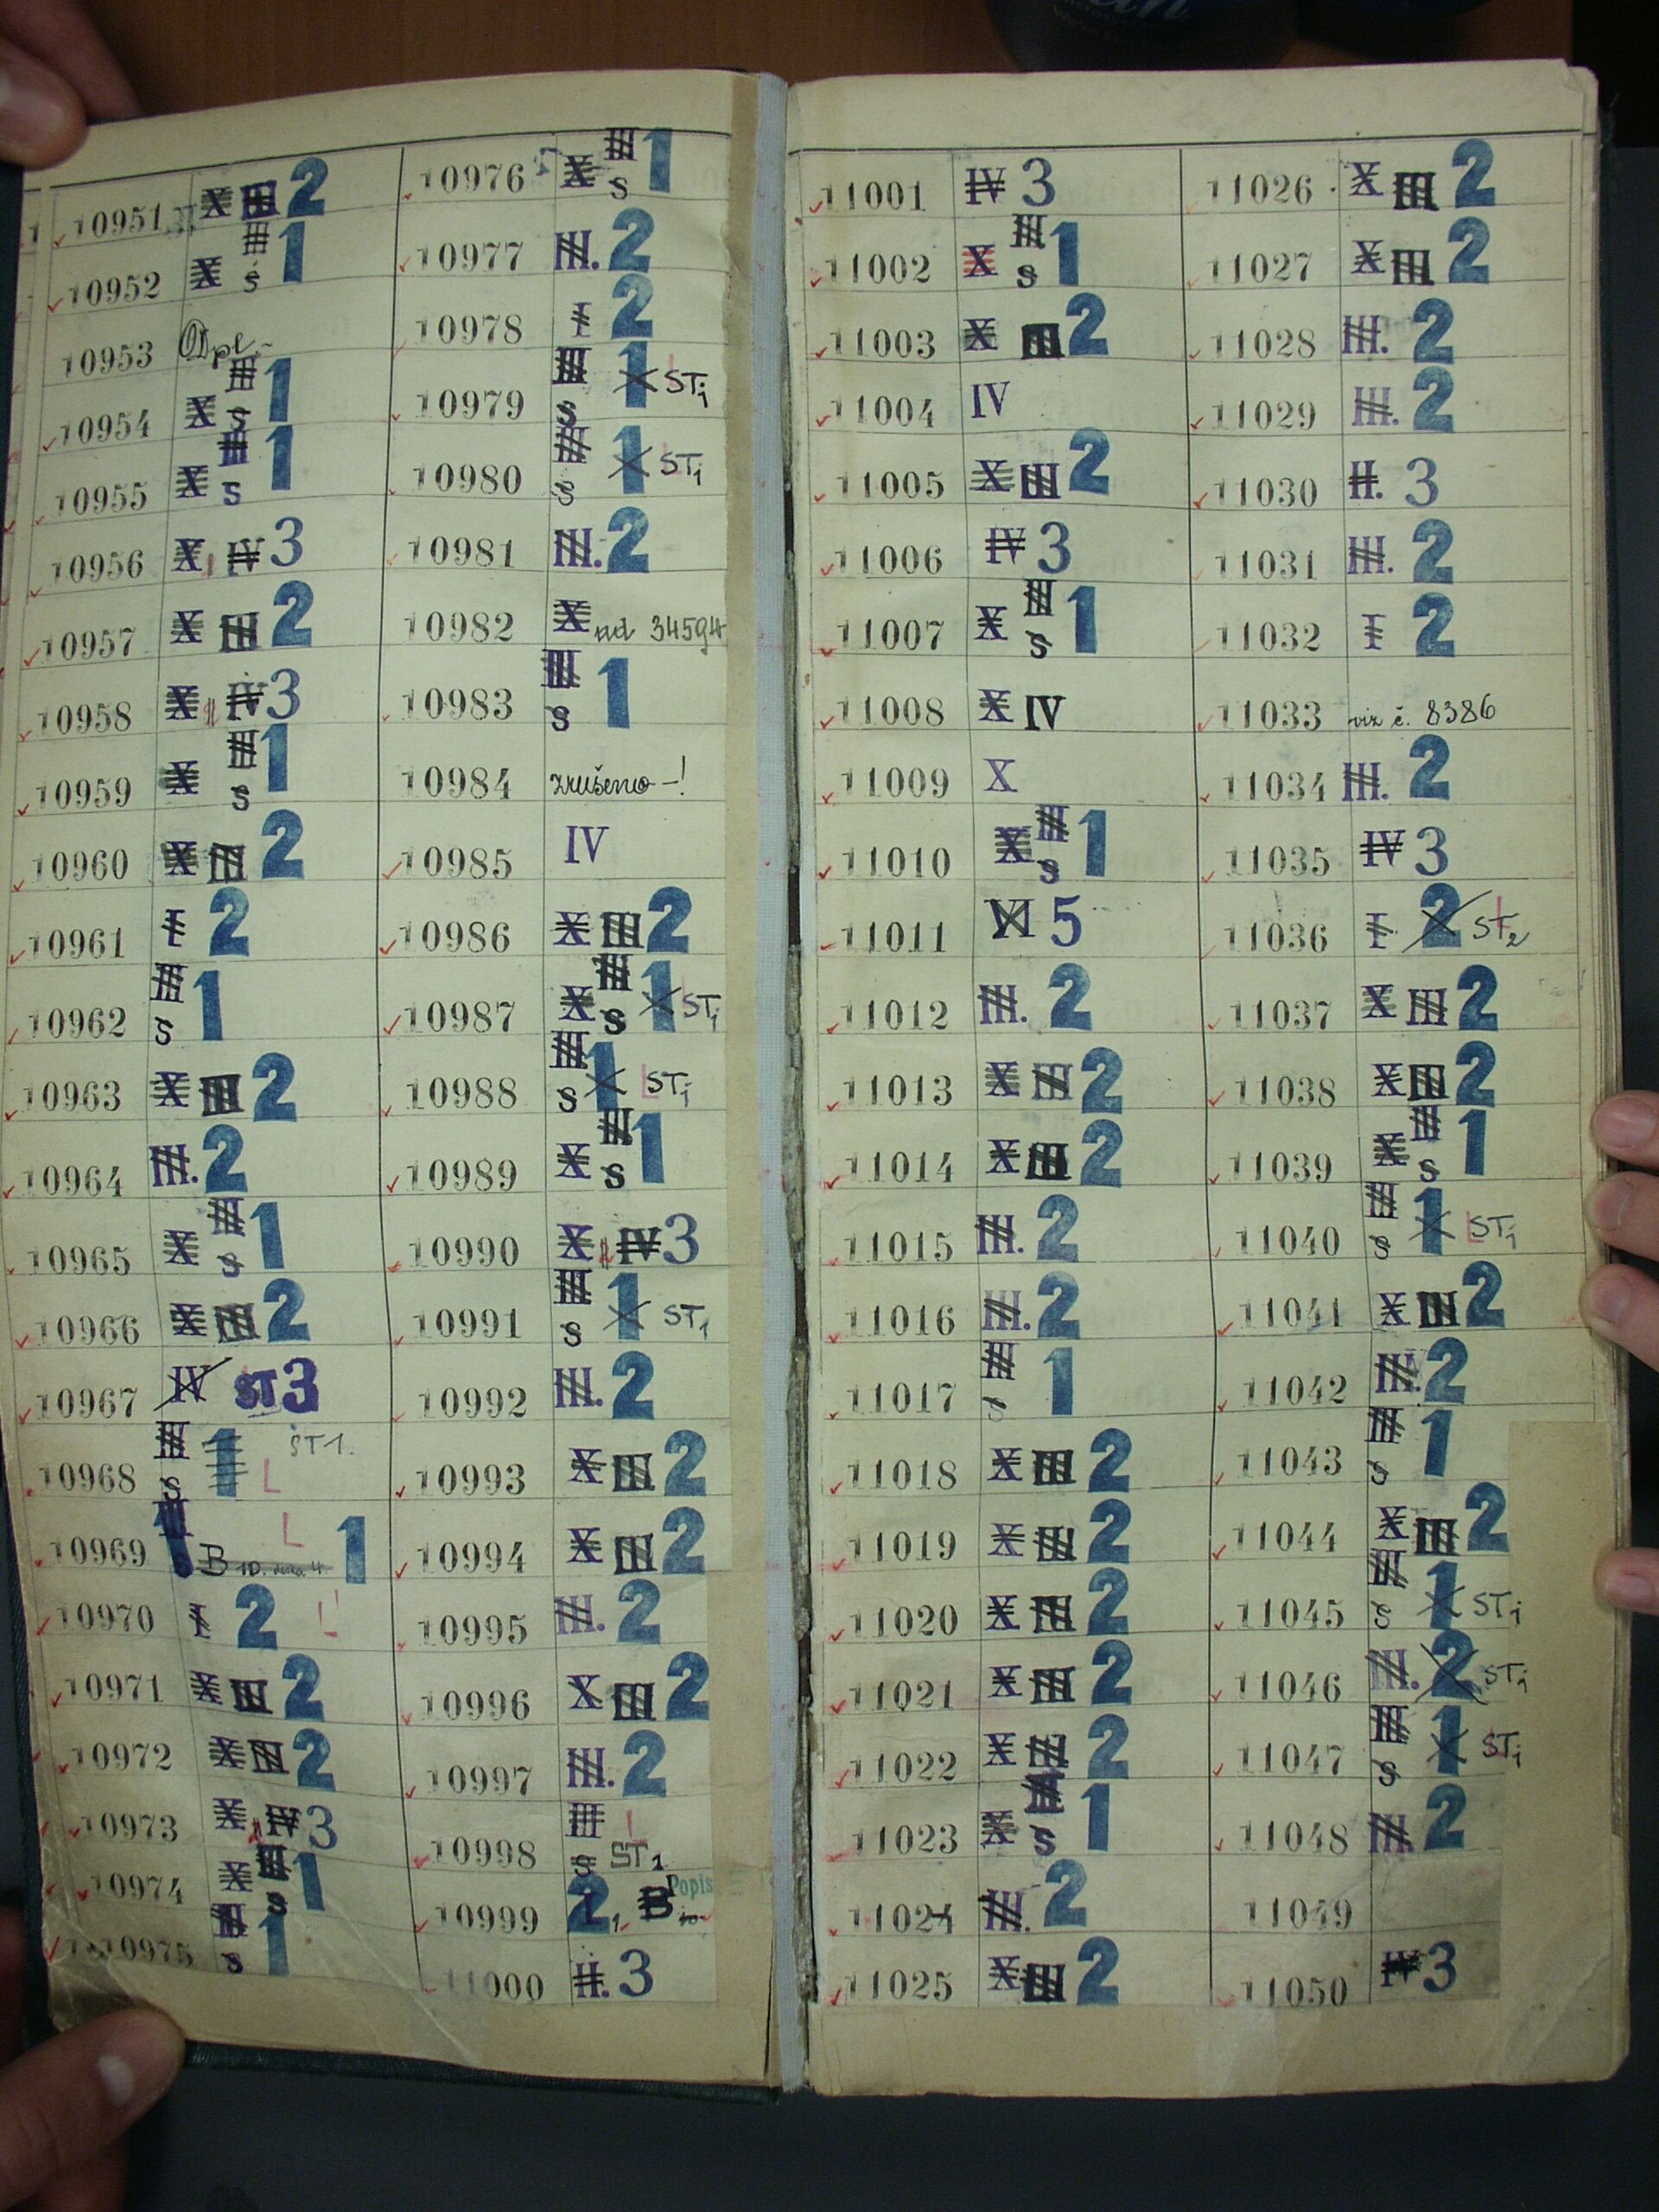 10951 X III 2
10952 X III S 1
10953 Odpl.
10954 X III S 1
10955 X III S 1
10956 X IV 3
10957 X III 2
10958 X IV 3
10959 X III S 1
10960 X III 2
10961 I 2
10962 III S 1
10963 X III 2
10964 III. 2
10965 X III S 1
10966 X III 2
10967 IV ST 3
10968 III S 1 ST1. L
10969 1 B L 1
10970 I 2
10971 X III 2
10972 X III 2
10973 X IV 3
10974 X III S 1
10975 III S 1
10976 X III S 1
10977 III. 2
10978 I 2
10979 III S 1 ST1
10980 III S 1 ST1
10981 III. 2
10982 X 34594
10983 III S 1
10984 zrušeno -!
10985 IV
10986 X III 2
10987 X III S 1 ST1
10988 III S 1 ST1
10989 X III S 1
10990 X IV 3
10991 III S 1 ST1
10992 III. 2
10993 X III 2
10994 X III 2
10995 III. 2
10996 X III 2
10997 III. 2
10998 III S L ST1
10999 2 B Popis
11000 II. 3
11001 IV 3
11002 X III S 1
11003 X III 2
11004 IV
11005 X III 2
11006 IV 3
11007 X III S 1
11008 X IV
11009 X
11010 X III S 1
11011 VI 5
11012 III. 2
11013 X III 2
11014 X III 2
11015 III. 2
11016 III. 2
11017 III S 1
11018 X III 2
11019 X III 2
11020 X III 2
11021 X III 2
11022 X III 2
11023 X III S 1
11024 III. 2
11025 X III 2
11026 X III 2
11027 X III 2
11028 III. 2
11029 III. 2
11030 II. 3
11031 III. 2
11032 I 2
11033 viz č. 8386
11034 III. 2
11035 IV 3
11036 I 2 ST2
11037 X III 2
11038 X III 2
11039 X III S 1
11040 III S 1 L ST1
11041 X III 2
11042 III. 2
11043 III S 1
11044 X III 2
11045 III S 1 ST1
11046 III. 2 ST1
11047 III S 1 ST1
11048 III. 2
11049
11050 IV 3